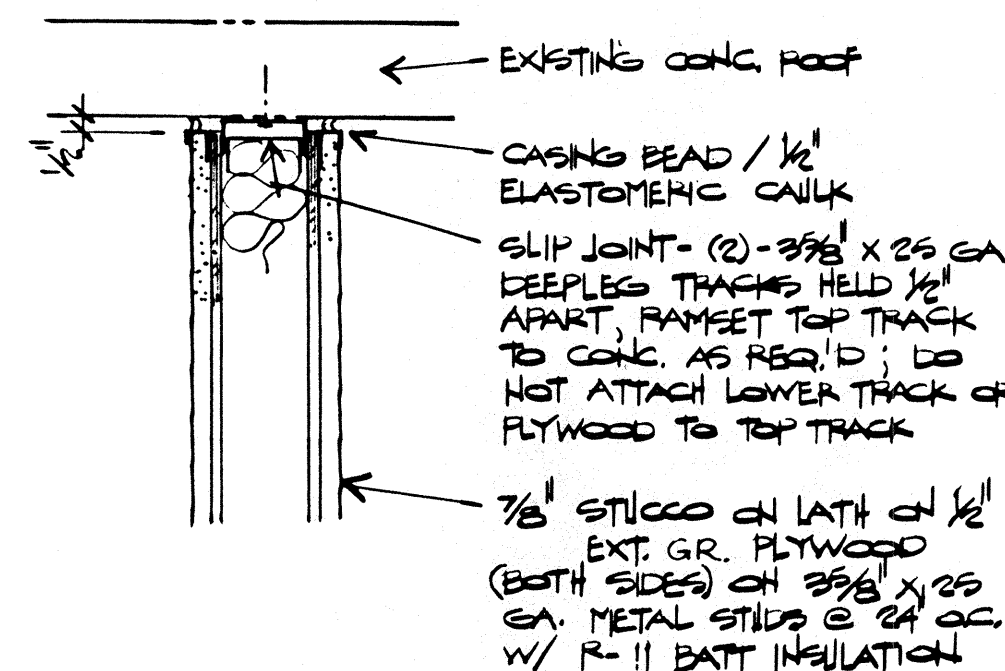 EXISTING CONC. ROOF
1/2"
CASING BEAD / 1/2"
ELASTOMERIC CAULK
SLIP JOINT- (2)- 3 5/8" X 25 GA
DEEPLEG TRACKS HELD 1/2"
APART, RAMSET TOP TRACK
TO CONC. AS REQ.'D ; DO
NOT ATTACH LOWER TRACK OR
PLYWOOD TO TOP TRACK
7/8" STUCCO ON LATH ON 1/2"
EXT. GR. PLYWOOD
(BOTH SIDES) ON 3 5/8" X 25
GA. METAL STUDS @ 24" O.C.
W/ R-11 BATT INSULATION